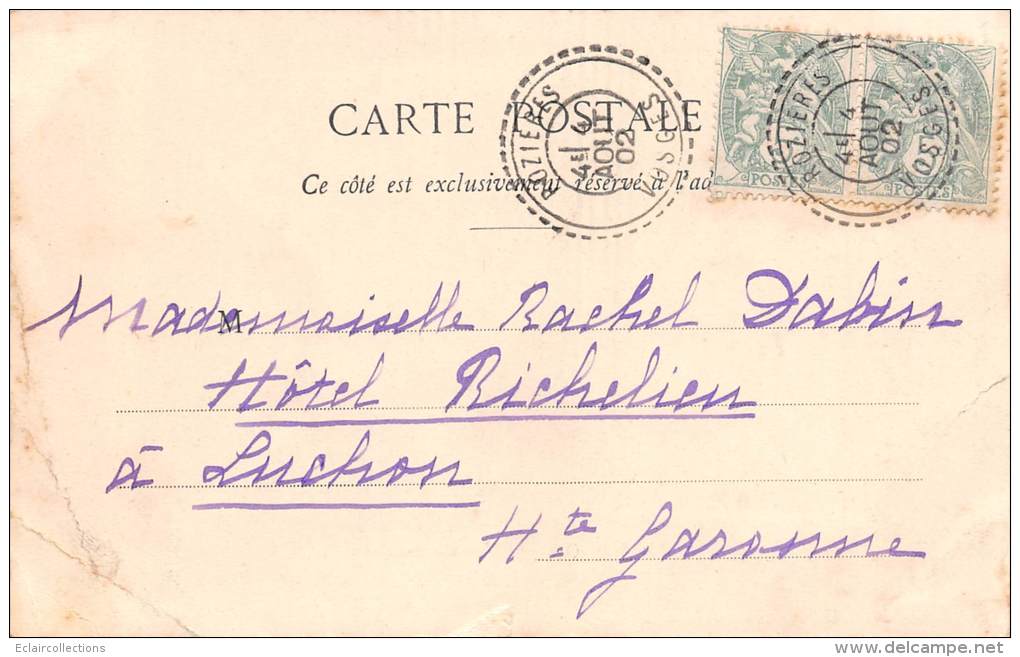 CARTE POSTALE
Ce côté est exclusivement réservé à l'ad
ROZIERES
4E 4
AOUT
02
VOSGES
POSTES
ROZIERES
4E 4
AOUT
02
VOSGES
POSTES
M
Mademoiselle Rachel Dabin
Hôtel Richelieu
à Luchon
Hte Garonne
Eclaircollections
delcampe.net